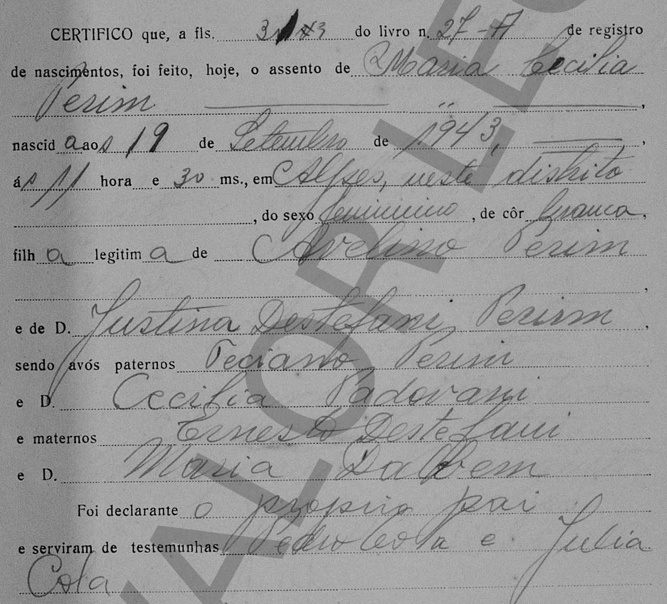 CERTIFICO que, a fls. do livro n. 27-A de registro
de nascimentos, foi feito, hoje, o assento de Maria Cecilia
Perim
nascida aos 19 de Setembro de 1943,
ás 11 hora e 30 ms., em Alpes, neste distrito
, do sexo feminino, de côr branca.
filha legitima de Avelino Perim
e de D. Justina Destefani Perim
sendo avós paternos Perim
e D. Cecilia Padovani
e maternos Ernesto Destefani
e D. Maria Dalbem
Foi declarante o proprio pai
e serviram de testemunhas Pedro Cola e Julia
Cola
VALOR LEG